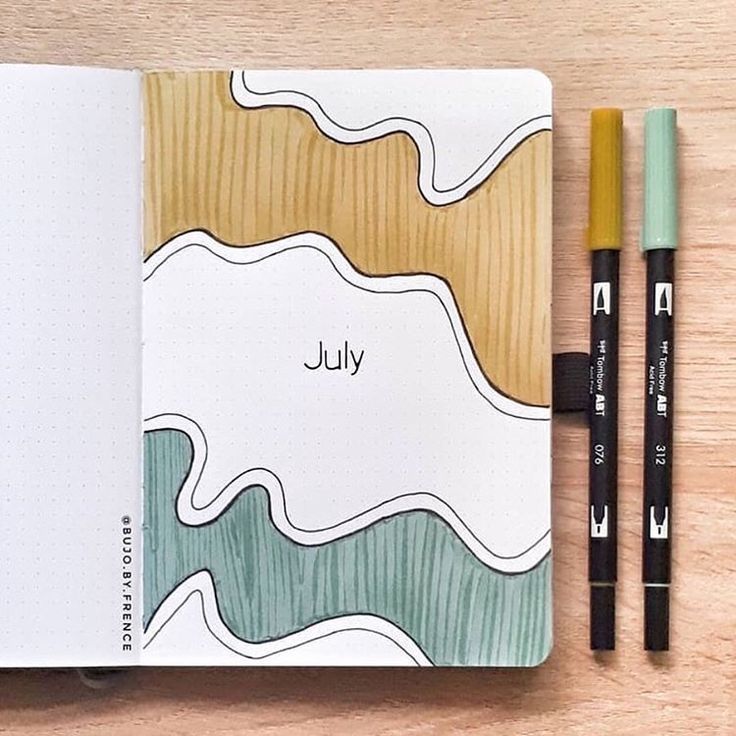 July
@BUJO.BY.FRENCE
Tombow ABT
Acid Free
076
Tombow ABT
Acid Free
312